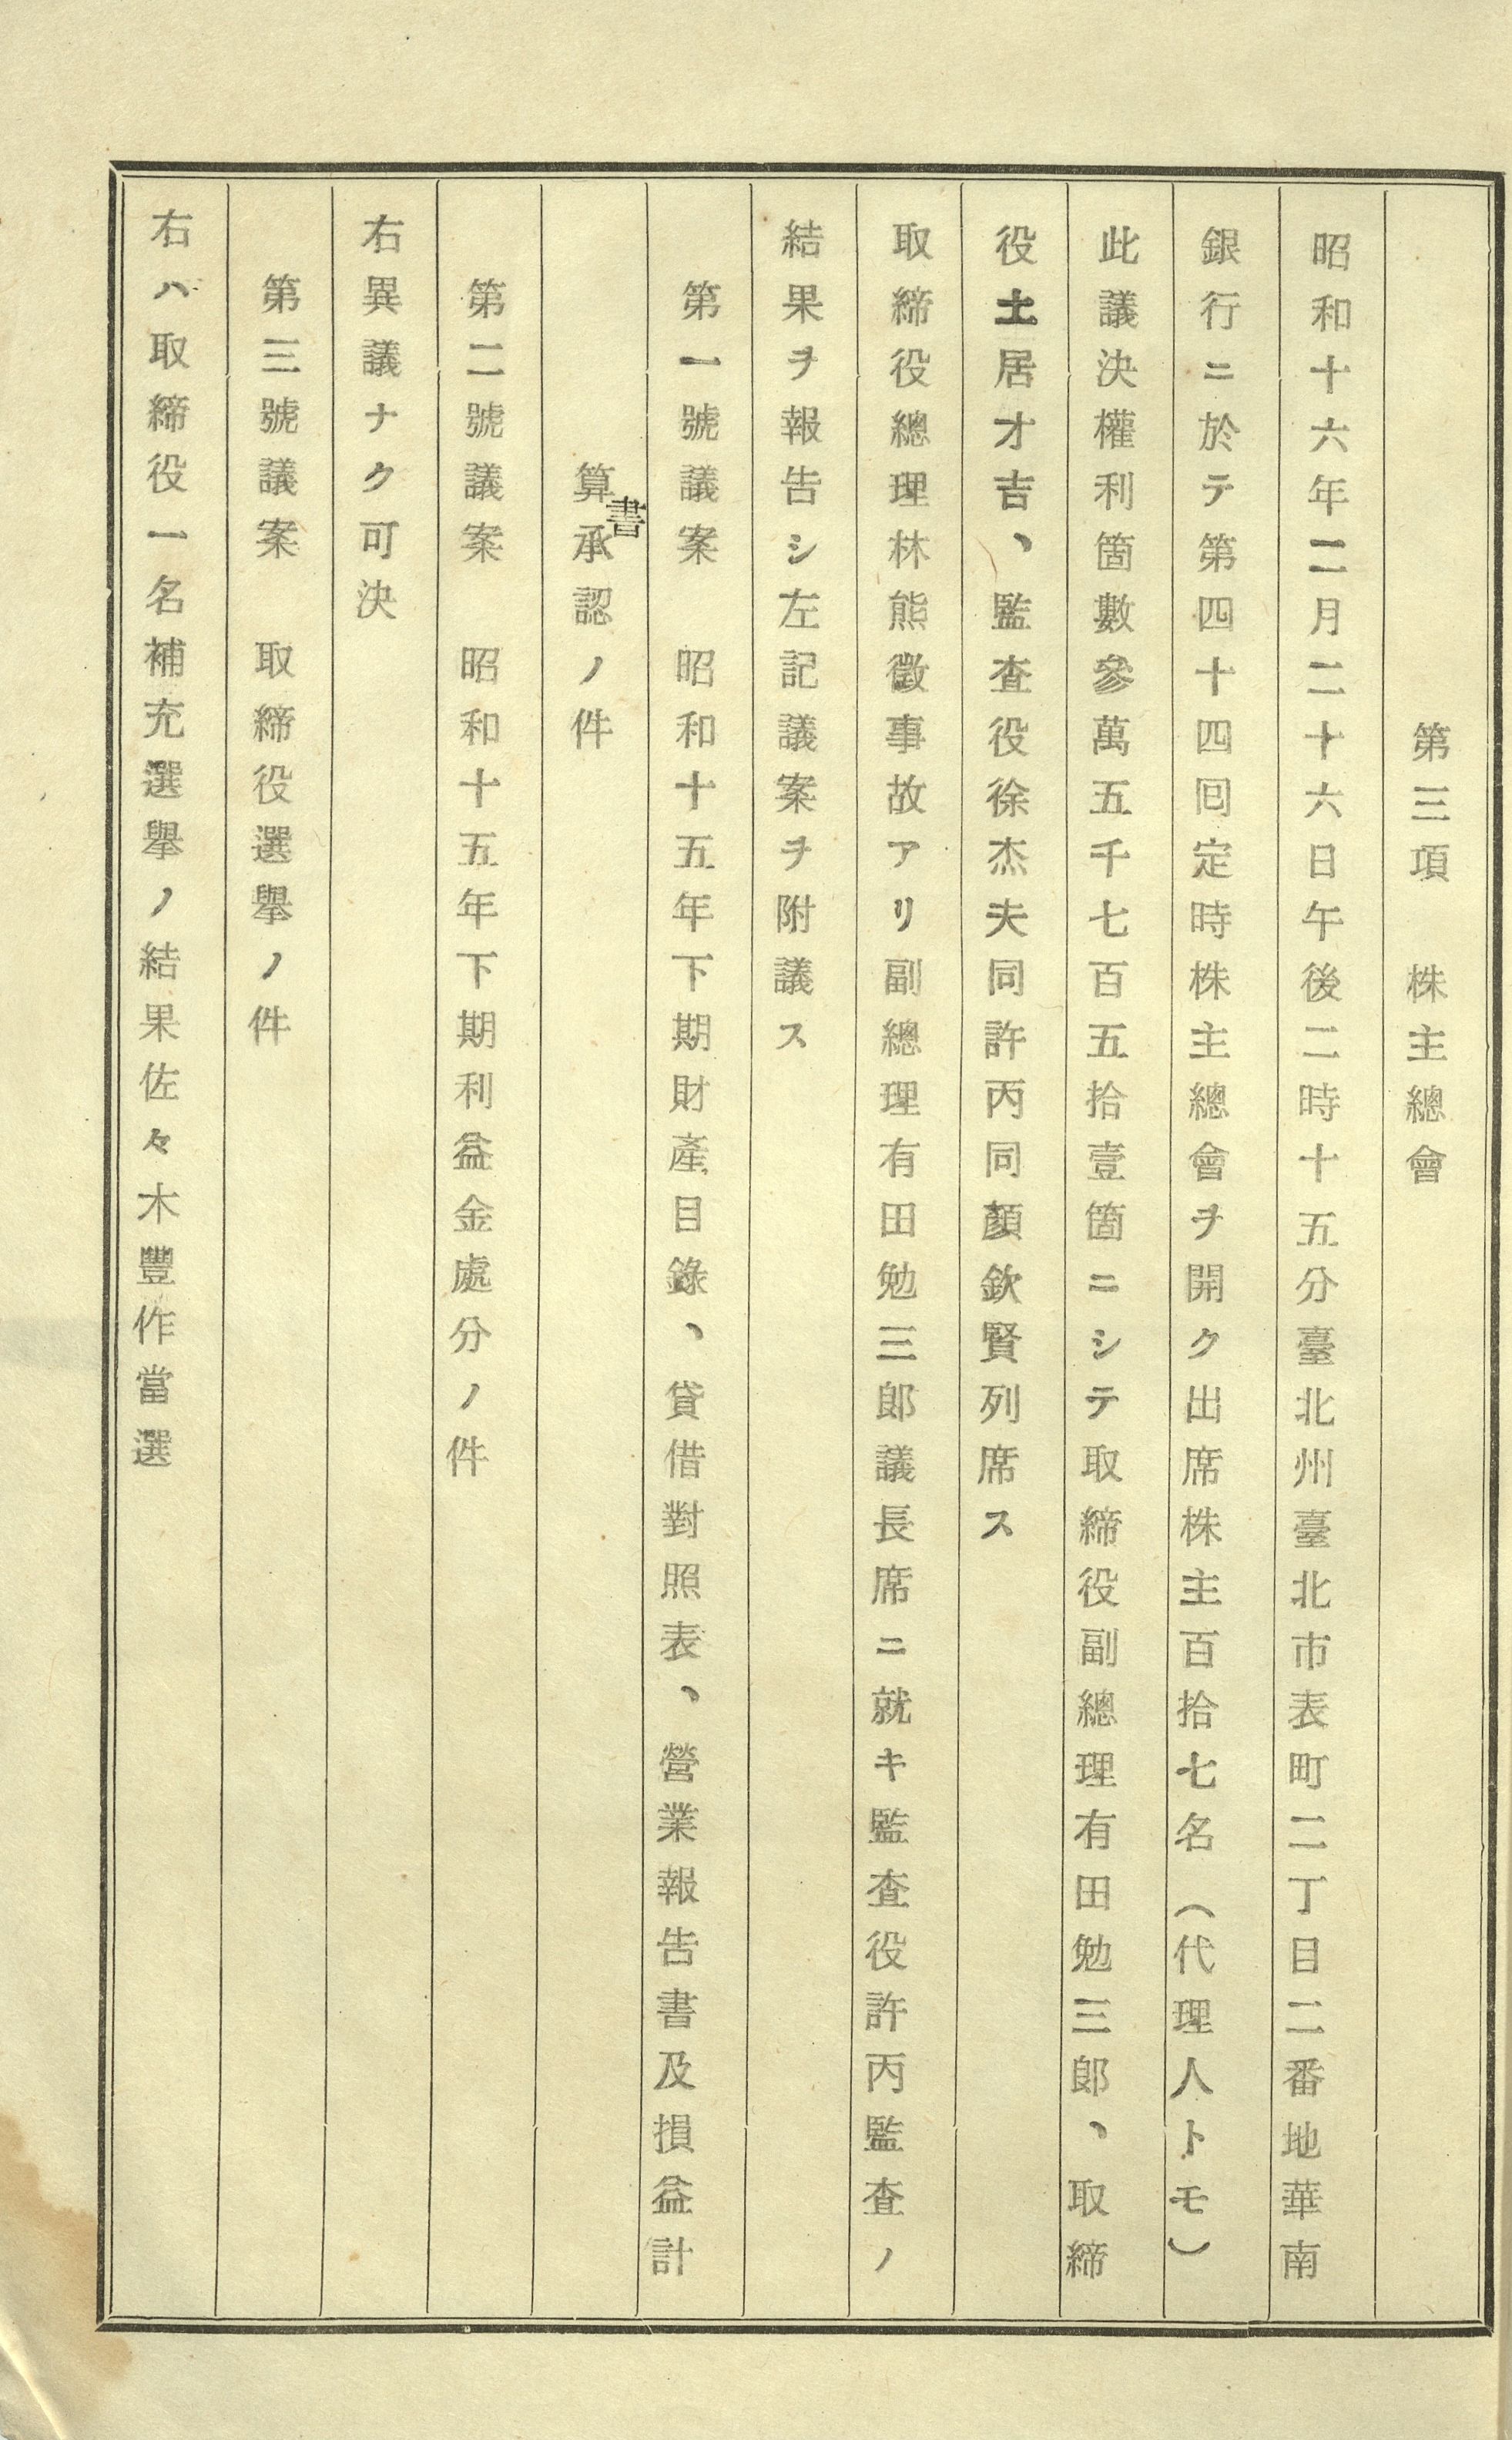 第三項　株主總會
昭和十六年二月二十六日午後二時十五分臺北州臺北市表町二丁目二番地華南
銀行ニ於テ第四十四囘定時株主總會ヲ開ク出席株主百拾七名（代理人トモ）
此議決權利箇數參萬五千七百五拾壹箇ニシテ取締役副總理有田勉三郎、取締
役土居才吉、監査役徐杰夫同許丙同顏欽賢列席ス
取締役總理林熊徵事故アリ副總理有田勉三郎議長席ニ就キ監査役許丙監査ノ
結果ヲ報告シ左記議案ヲ附議ス
第一號議案　昭和十五年下期財產目錄、貸借對照表、營業報告書及損益計
算書承認ノ件
第二號議案　昭和十五年下期利益金處分ノ件
右異議ナク可決
第三號議案　取締役選擧ノ件
右ハ取締役一名補充選擧ノ結果佐々木豐作當選